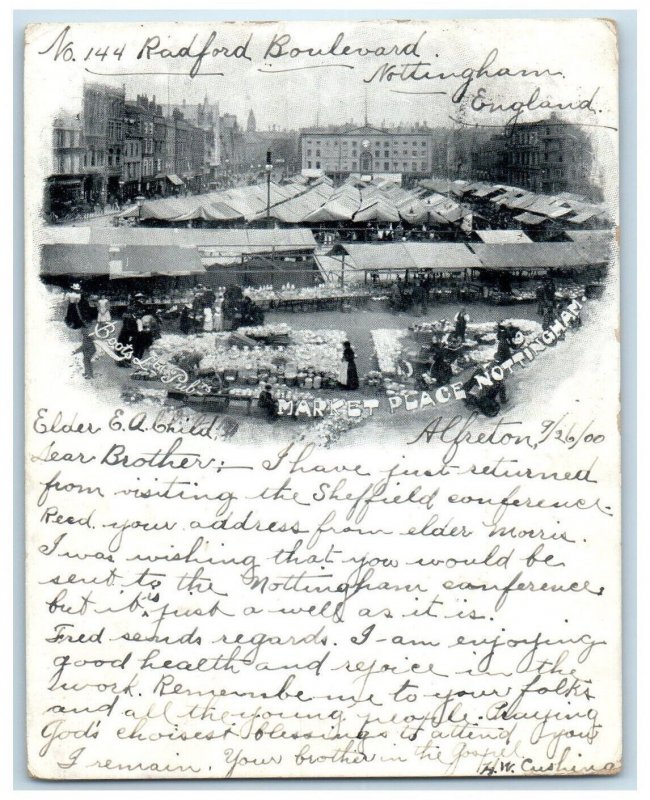 No. 144 Radford Boulevard.
Nottingham
England.
Boots Ltd. Pubrs
MARKET PLACE NOTTINGHAM
Elder E. A. Child,
Alfreton, 9/26/00
Dear Brother:- I have just returned
from visiting the Sheffield conference.
Recd. your address from elder Morris.
I was wishing that you would be
sent to the Nottingham conference,
but it is just a well as it is.
Fred sends regards. I am enjoying
good health and rejoice in the
work. Remember me to your folks
and all the young people. Praying
God's choisest blessings to attend you
I remain. Your brother in the Gospel
H. W. Cushing